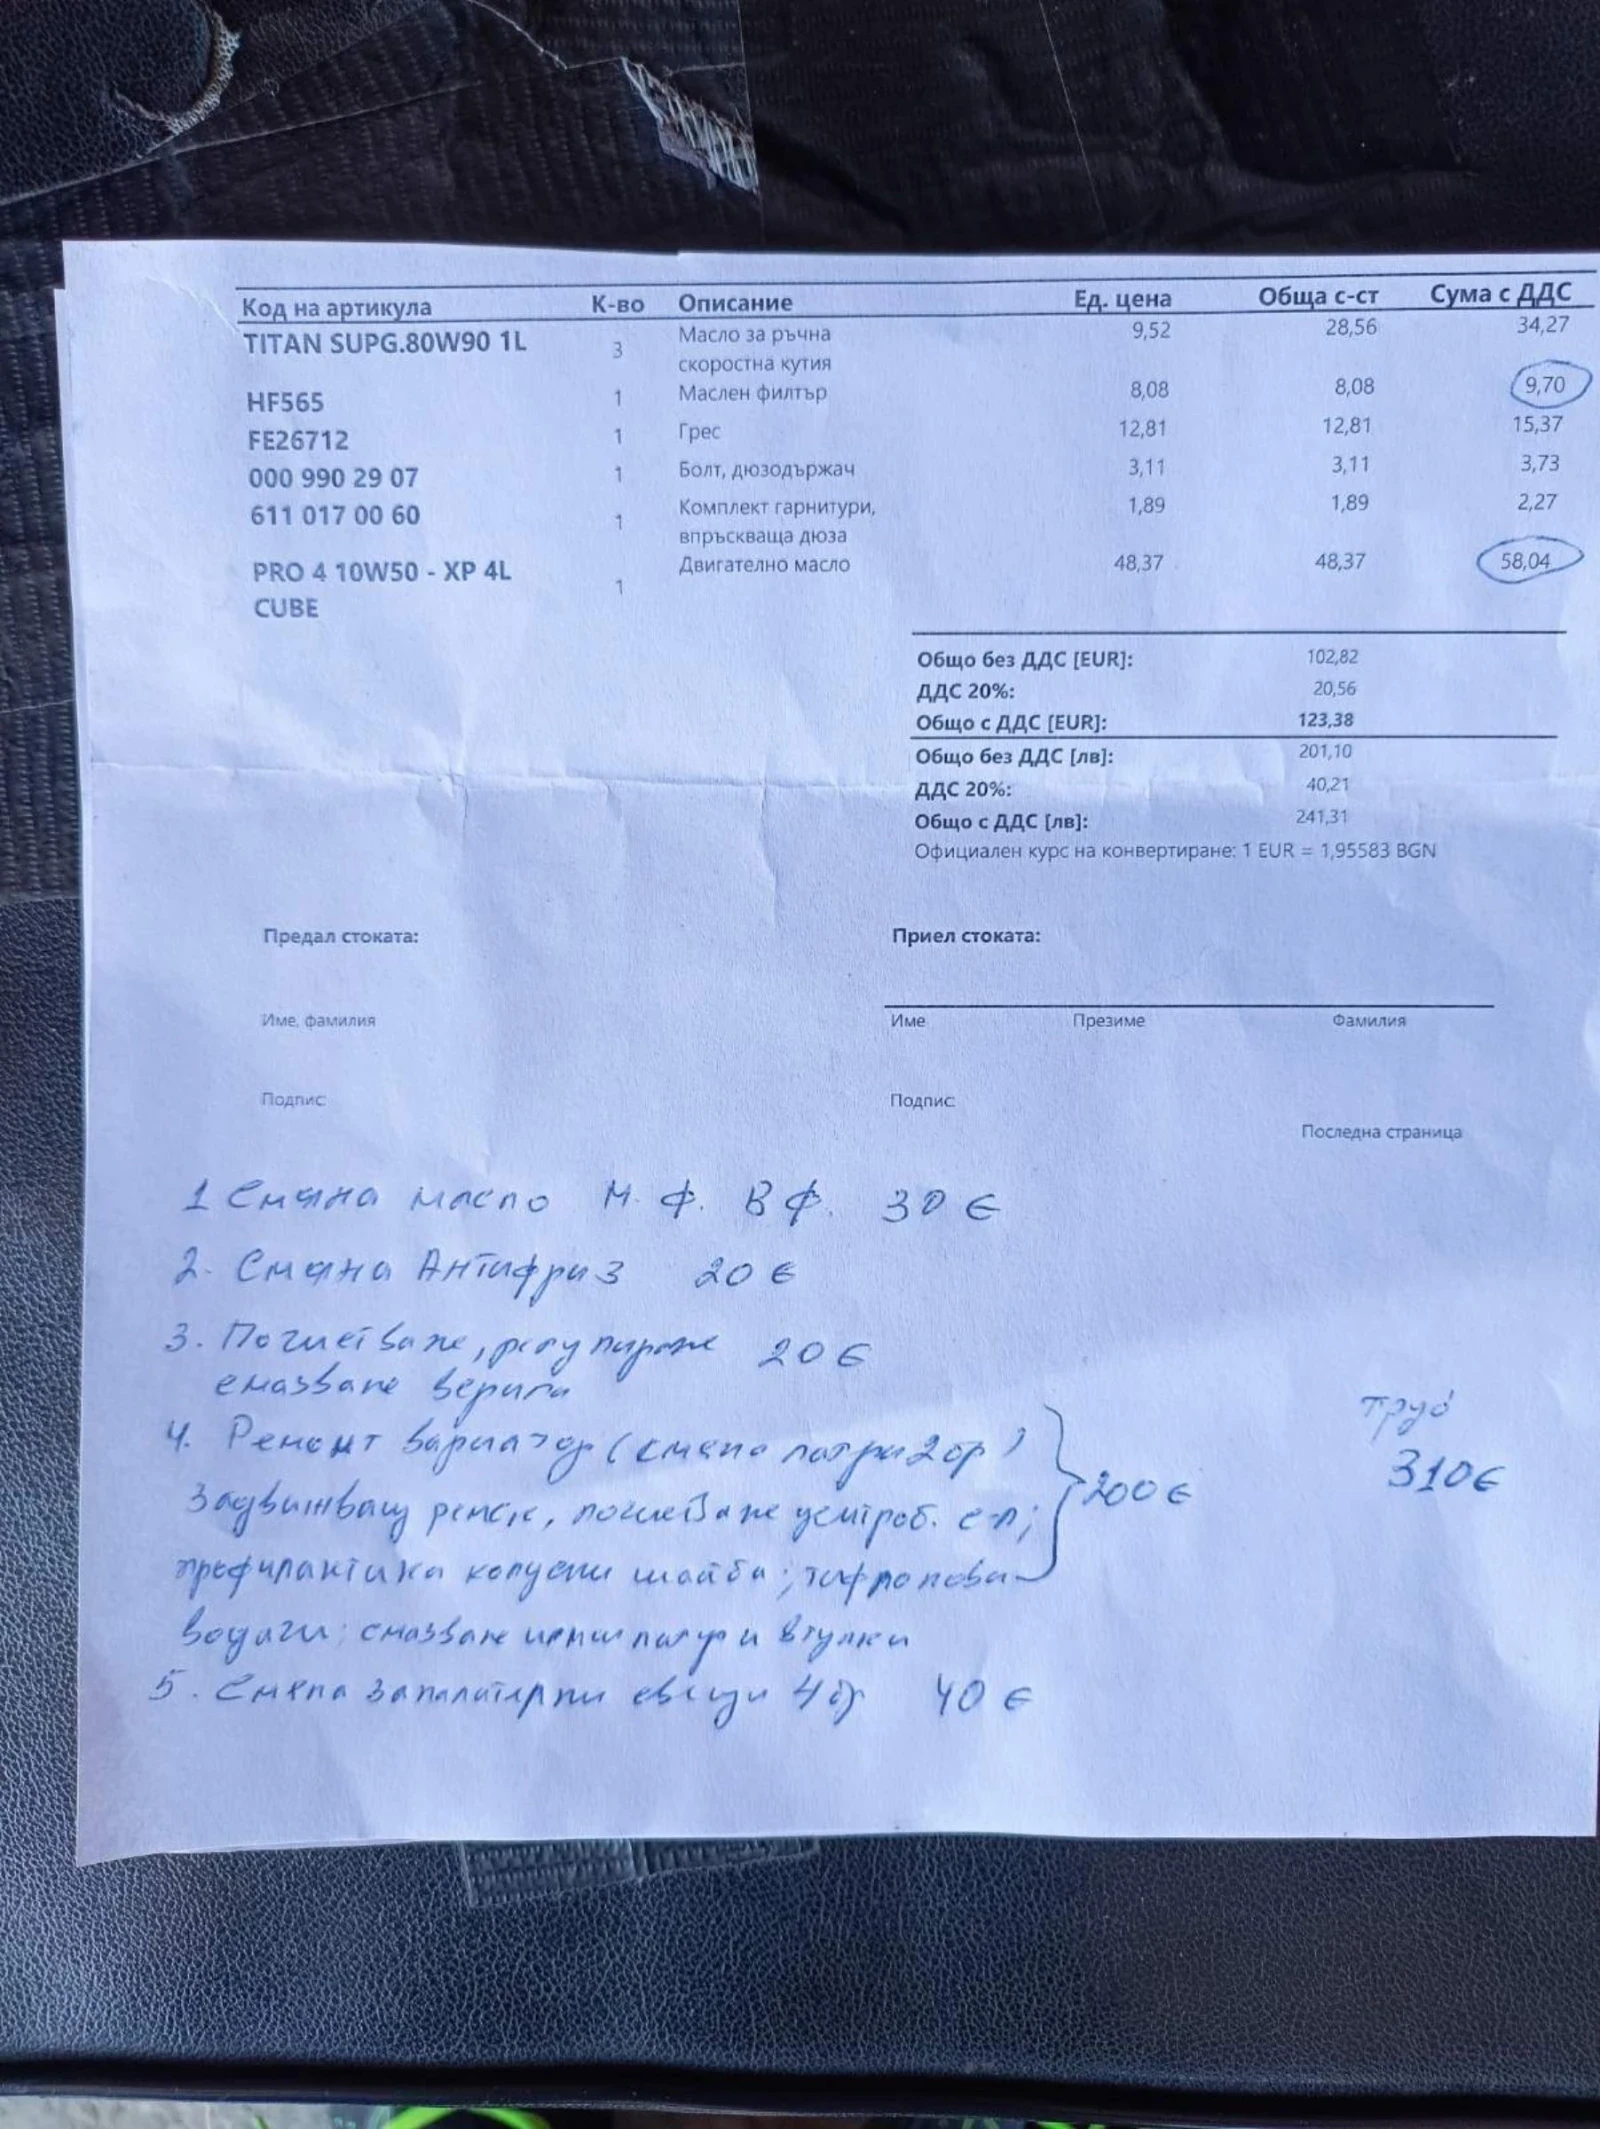 Код на артикула К-во Описание Ед. цена Обща с-ст Сума с ДДС
TITAN SUPG.80W90 1L 3 Масло за ръчна 9,52 28,56 34,27
скоростна кутия
HF565 1 Маслен филтър 8,08 8,08 9,70
FE26712 1 Грес 12,81 12,81 15,37
000 990 29 07 1 Болт, дюзодържач 3,11 3,11 3,73
611 017 00 60 1 Комплект гарнитури, 1,89 1,89 2,27
впръскваща дюза
PRO 4 10W50 - XP 4L 1 Двигателно масло 48,37 48,37 58,04
CUBE
Общо без ДДС [EUR]: 102,82
ДДС 20%: 20,56
Общо с ДДС [EUR]: 123,38
Общо без ДДС [лв]: 201,10
ДДС 20%: 40,21
Общо с ДДС [лв]: 241,31
Официален курс на конвертиране: 1 EUR = 1,95583 BGN
Предал стоката: Приел стоката:
Име, фамилия Име Презиме Фамилия
Подпис: Подпис:
Последна страница
1 Смяна масло М. Ф. В Ф. 30 €
2. Смяна Антифриз 20 €
3. Почистване, регулиране 20 €
смазване верига
4. Ремонт вариатор (смяна лагери 2бр)
Задвижващ ремък, почистване центроб. с-л; 200 €
труд
310 €
профилактика конусни шайби; тефлонови
водачи; смазване иглен лагер и втулки
5. Смяна запалителни свещи 4бр 40 €